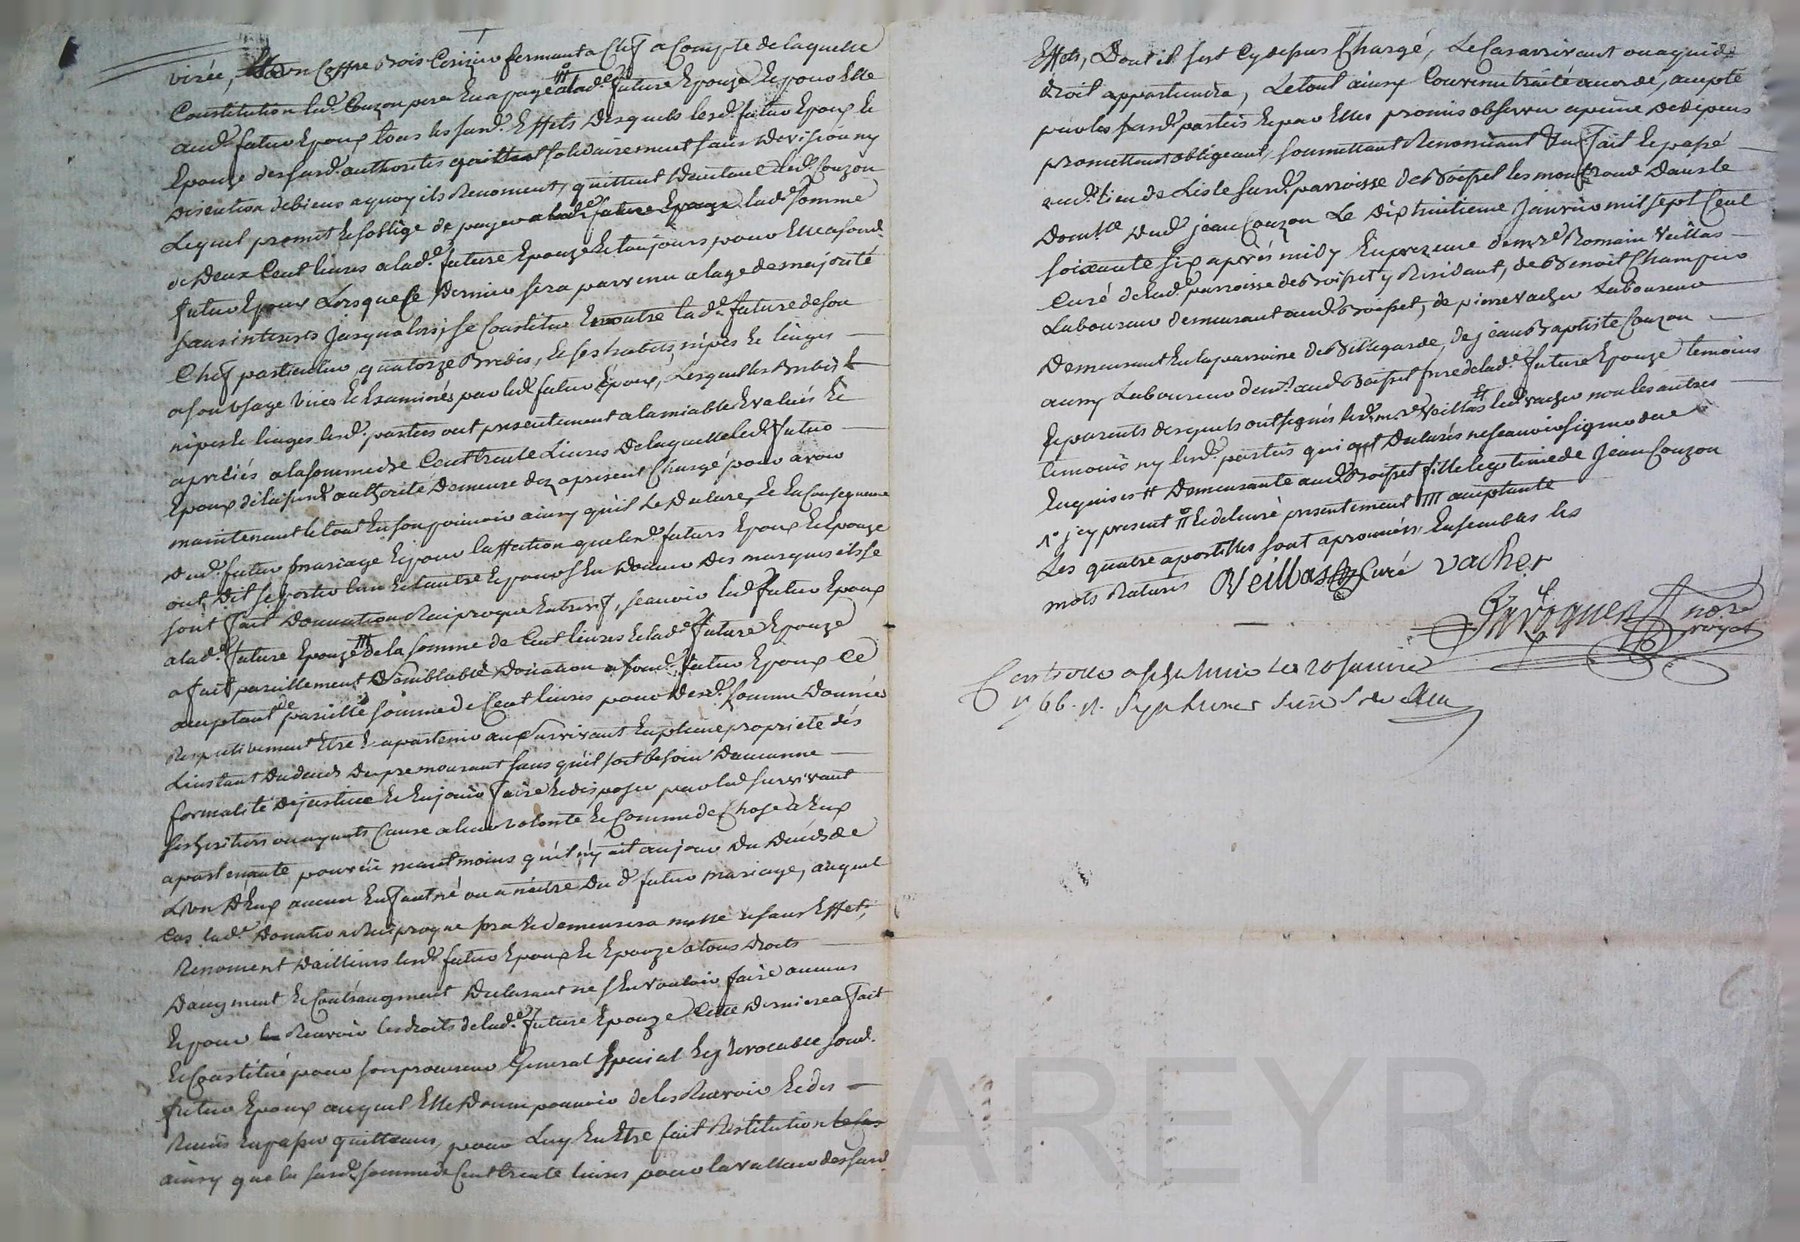 virée, d'un Coffre Bois Cerizier fermant a Clef a Compte de laquelle
Constitution led. Couzon pere En a payé a lad.e future Epouze Et pour Elle
aud. futur Epoux tous les susd. Effets desquels lesd. futur Epoux Et
Epouze des susd. authorités quittent solidairement sans division ny
discution de biens a quoy ils Renoncent, quittent led. Couzon
Lequel promet Et s'oblige de payer a lad.e future Epouze lad. somme
de Deux Cent livres a lad.e future Epouze Et toujours pour Elle a son d.
futur Epoux Lorsque Ce Dernier sera parvenu a l'age de majorité
sans interests jusqu'alors, se Constitue En outre lad.e future de son
Chef particulier, quatorze Brebis, Et ses habits, nipes Et linges
a son usage vires Et Examinés par led. futur Epoux, Lesquelles Brebis Et
nipes Et linges lesd. parties ont presentement a l'amiable Evalués Et
apretiés a la somme de Cent trente Livres De laquelle led. futur
Epoux de la susd. authorité Demeure dez a present Chargé pour avoir
maintenant le tout En son pouvoir ainsy qu'il Le Declare, Et En Consequence
Dud. futur mariage Et pour l'affection que lesd. futurs Epoux Et Epouze
ont Dit se porter l'un Et l'autre Et pour s'En Donner Des marques ils se
sont fait Donnation Reciproque Entrevif, scavoir led. futur Epoux
a lad.e future Epouze de la somme de Cent livres Et lad.e future Epouze
a fait pareillement Semblable Donation a son d. futur Epoux Ce
acceptant de pareille somme de Cent livres pour Lesd. somme Donnée
Respectivement Etre Et apartenir au survivant En pleine propriete dés
L'instant Du decés Du premourant sans qu'il soit besoin D'aucunne
formalité de justice Et En jouir faire Et disposer par led. survivant
ses heritiers ou ayants Cause a leur volonté Et Comme de Chose a Eux
apartenante pourveu neantmoins qu'il n'y ait au jour Du Decés de
L'un D'Eux aucun Enfant né ou a naitre Du d. futur mariage, auquel
Cas lad.e Donation Reciproque sera Et demeurera nulle Et sans Effets,
Renoncent D'ailleurs lesd. futur Epoux Et Epouze a tous Droits
D'augment Et Contreaugment Declarant ne s'En vouloir faire aucuns
Et pour Recevoir les droits de lad.e future Epouze Cette Derniere a fait
Et Constitué pour son procureur General Special Et irrevocable son d.
futur Epoux auquel Elle Donne pouvoir de les Recevoir Et des
Recûs En passer quittances, pour Luy En Etre fait Restitution
ainsy que la susd. somme de Cent trente livres pour la valleur des susd.
Effets, Dont il s'est Cy dessus Chargé, Le Cas arrivant ou a qui de
droit appartiendra, Le tout ainsy Convenu traité accordé, accepté
par les susd. parties Et par Elles promis observer a peine De depens
promettant obligeant, soumettant Renoncant &c fait Et passé
aud. lieu de Lisle susd. parroisse de Boisset les montrond Dans le
Domicile Dud. jean Couzon Le Dix huitieme Janvier mil sept Cent
soixante six après midy En presence de m.re Romain Veillas
Curé de lad.e parroisse de Boisset y Residant, de Benoit Champier
Laboureur demeurant aud. Boisset, de pierre vacher Laboureur
Demeurant En la parroisse de Bellegarde, de jean Baptiste Couzon
aussy Laboureur dem.t aud. Boisset frere de lad.e future Epouze temoins
Et parents desquels ont signés led. m.re Veillas Et led. vacher non les autres
temoins ny lesd. parties qui ont Declarés ne scavoir signer de ce
Enquis Demeurante aud. Boisset fille legitime de Jean Couzon
icy present Et delivré presentement acceptante
Les quatre apostilles sont aprouvées Ensembles les
mots Raturés Veillas Curé vacher
no.re
royal
Controllé a le 20 janvier
1766.